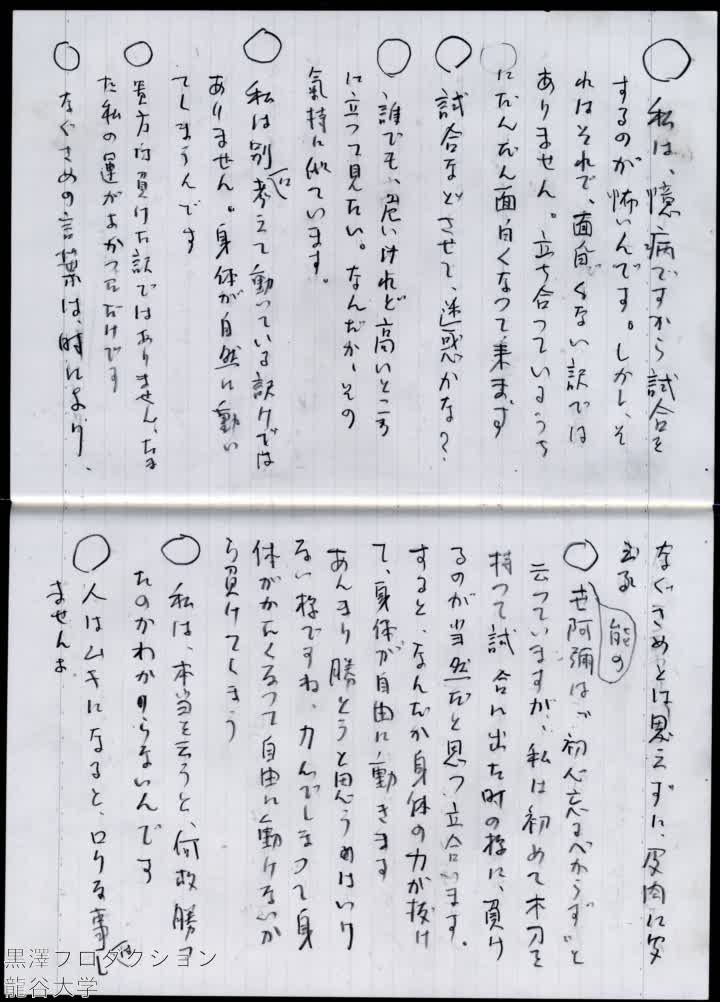 ○ 私は、憶病ですから試合を
するのが怖いんです。しかし、そ
れはそれで、面白くない訳では
ありません。立ち合っているうち
にだんだん面白くなって来ます
○ 試合などさせて、迷惑かな?
○ 誰でも、危いけれど高いところ
に立って見たい。なんだか、その
氣持に似ています。
○ 私は別に考えて動いている訳けでは
ありません。身体が自然に動い
てしまうんです
○ 貴方は負けた訳ではありません、たま
た私の運がよかっただけです
○ なぐさめの言葉は、時により、
なぐさめとは思えずに、皮肉に
○ 能の世阿彌は〝初心忘るべからず〟と
云っていますが、私は初めて木刀を
持って試合に出た時の様に、負け
るのが当然だと思って立合います。
すると、なんだか身体の力が抜け
て、身体が自由に動きます
あんまり勝とうと思うのはいけ
ない様ですね、力んでしまって身
体がかたくなって自由に動けないか
ら負けてしまう
○ 私は、本当を云うと、何故勝っ
たのかわからないんです
○ 人はムキになると、ロクな事に
ませんよ
黒澤プロダクション
龍谷大学